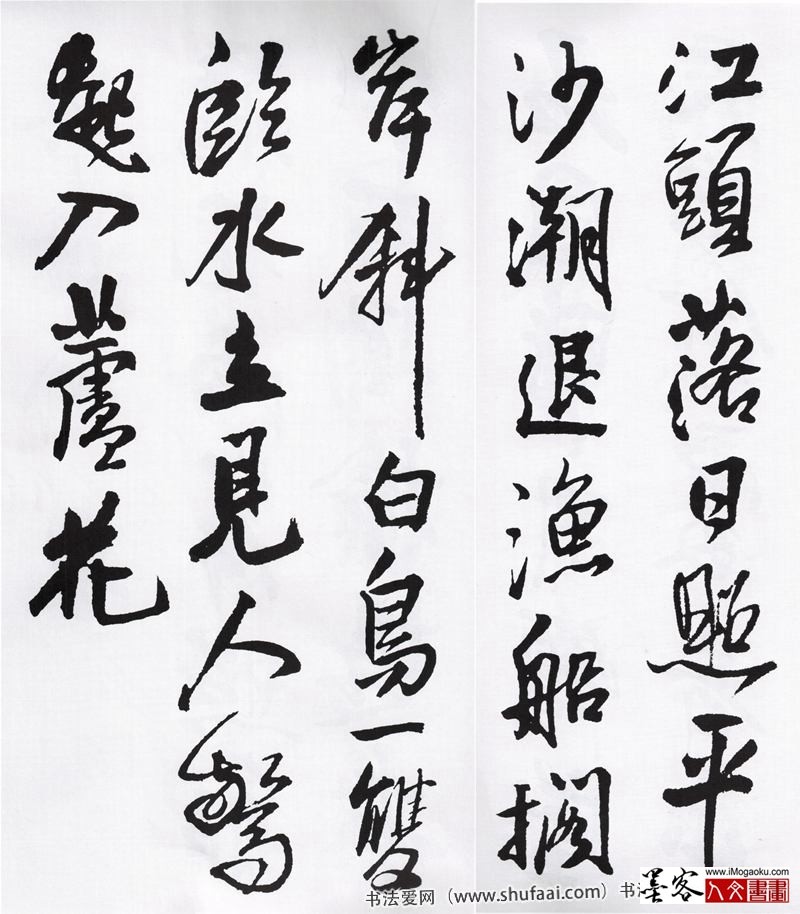 江頭落日照平
沙潮退漁船擱
岸斜白鳥一雙
臨水立見人驚
起入蘆花
书法爱网（www.shufaai.com）书
墨客
www.iMogaoku.com
人文書畫